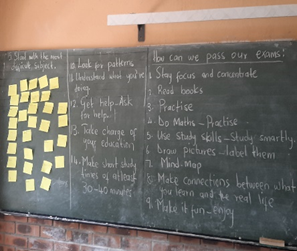 5. Start with the most
difficult subject.
10. Look for patterns
11. Understand what you're
doing
12. Get help - Ask
for help!
13. Take charge of
your education
14. Make short study
times of atleast
30-40 minutes
How can we pass our exams?
1. Stay focus and concentrate
2. Read books
3. Practise
4. Do Maths - Practise
5. Use study skills - Study smartly.
6. Draw pictures - label them
7. Mind-Map
8. Make connections between what
you learn and the real life
9. Make it fun - enjoy